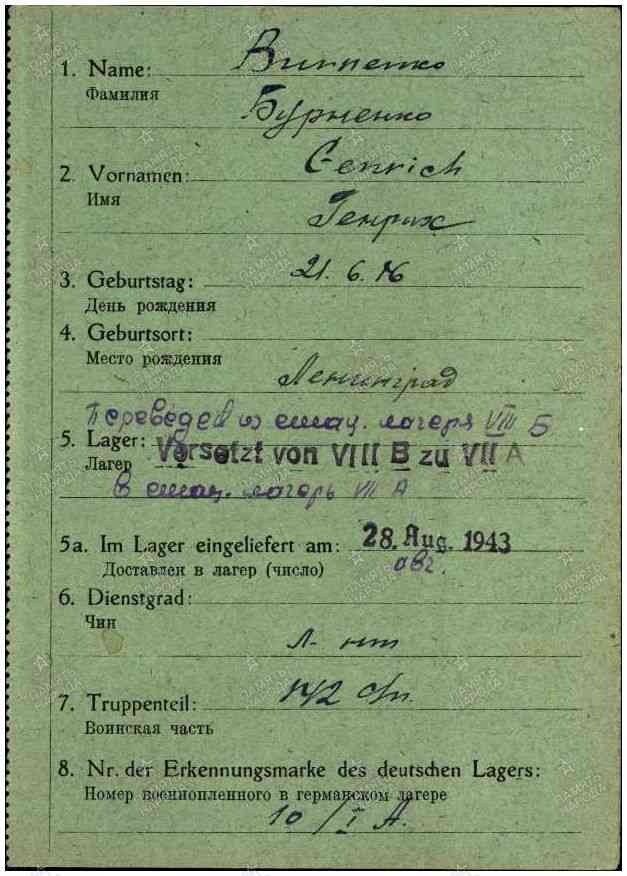 1. Name:
Фамилия
Бурненко
2. Vornamen: Genrich
Имя
Генрих
3. Geburtstag: 21. 6. 16
День рождения
4. Geburtsort:
Место рождения
Ленинград
Переведен из стац. лагеря VIII Б
5. Lager: Versetzt von VIII B zu VII A
Лагер
в стац. лагерь VII A
5a. Im Lager eingeliefert am: 28. Aug. 1943
Доставлен в лагер (число) авг.
6. Dienstgrad:
Чин
л-нт
7. Truppenteil: 142
Воинская часть
8. Nr. der Erkennungsmarke des deutschen Lagers:
Номер военнопленного в германском лагере
10/I A.